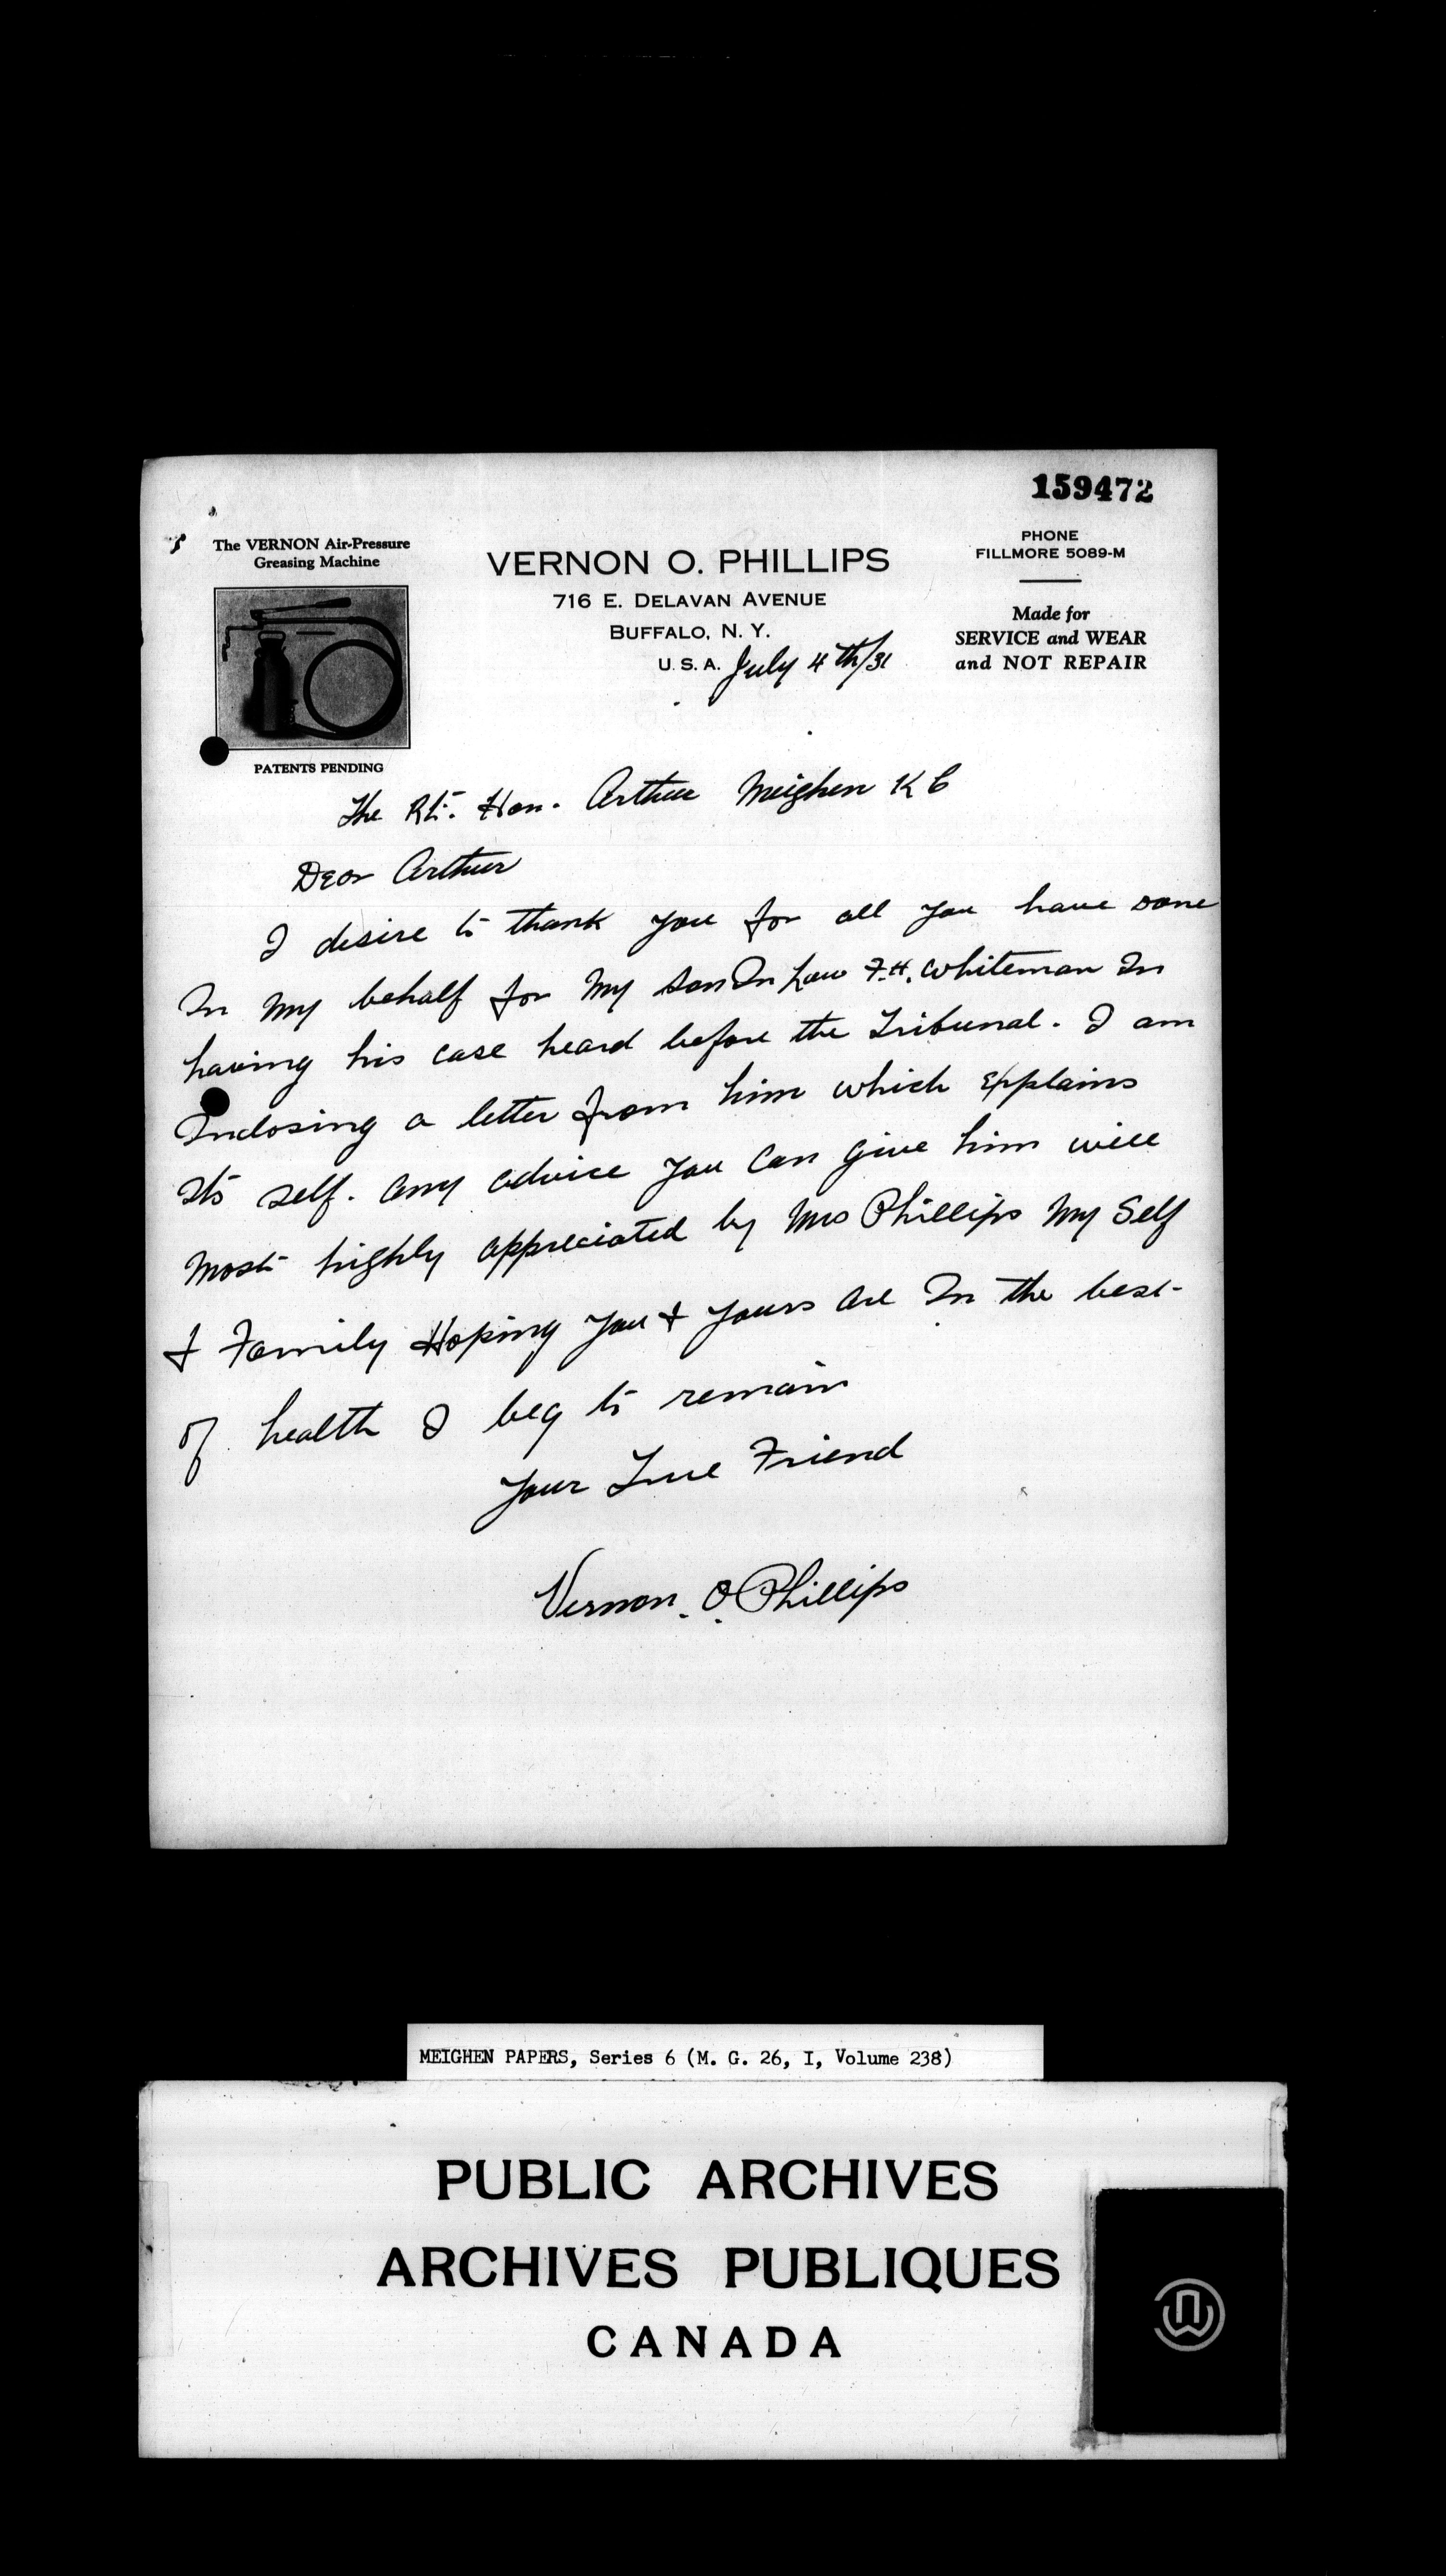 159472
The VERNON Air-Pressure
Greasing Machine
PATENTS PENDING
VERNON O. PHILLIPS
716 E. DELAVAN AVENUE
BUFFALO, N. Y.
U. S. A. July 4th/31
PHONE
FILLMORE 5089-M
Made for
SERVICE and WEAR
and NOT REPAIR
The Rt. Hon. Arthur Meighen K C
Dear Arthur
I desire to thank you for all you have done
In my behalf for my son In Law F.H. Whiteman In
having his case heard before the Tribunal. I am
Inclosing a letter from him which explains
Its self. Any advice you can give him will
most highly appreciated by Mrs Phillips My Self
& Family Hoping you & yours are In the best
of health I beg to remain
Your True Friend
Vernon. O. Phillips
MEIGHEN PAPERS, Series 6 (M. G. 26, I, Volume 238)
PUBLIC ARCHIVES
ARCHIVES PUBLIQUES
CANADA